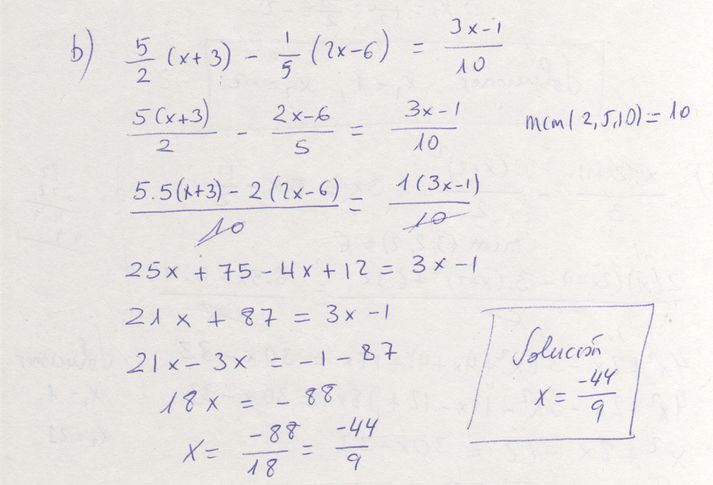 b) 5/2 (x+3) - 1/5 (2x-6) = 3x-1/10
5(x+3)/2 - 2x-6/5 = 3x-1/10 mcm(2,5,10)=10
5.5(x+3)-2(2x-6)/10 = 1(3x-1)/10
25x + 75 - 4x + 12 = 3x - 1
21x + 87 = 3x - 1
21x - 3x = -1 - 87
18x = - 88
x = -88/18 = -44/9
Solución
x = -44/9